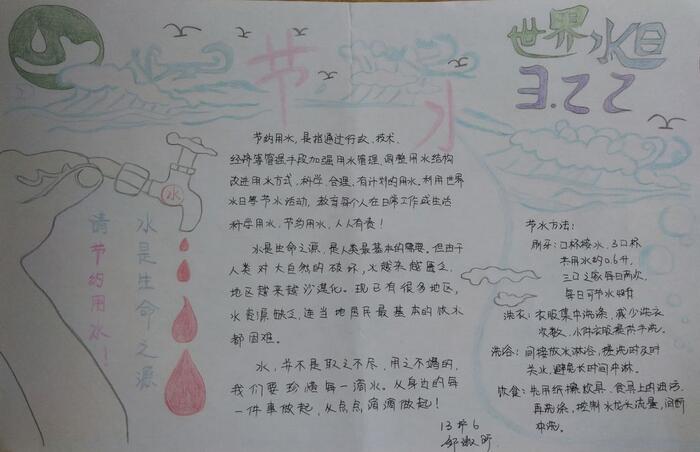 世界水日
3.22
节水
水
请节约用水！
水是生命之源
节约用水，是指通过行政、技术、
经济等管理手段加强用水管理，调整用水结构
改进用水方式，科学、合理、有计划的用水。利用世界
水日等节水活动，教育每个人在日常工作或生活
科学用水，节约用水，人人有责！
水是生命之源，是人类最基本的需要。但由于
人类对大自然的破坏，水越来越匮乏，
地区越来越沙漠化。现已有很多地区，
水资源缺乏，连当地居民最基本的饮水
都困难。
水，并不是取之不尽，用之不竭的，
我们要珍惜每一滴水。从身边的每
一件事做起，从点点滴滴做起！
13护6
节水方法：
刷牙：口杯接水，3口杯
共用水约0.6升，
三口之家每日两次，
每日可节水
洗衣：衣服集中洗涤，减少洗衣
次数，小件衣服提倡手洗。
洗浴：间接放水淋浴，搓洗时及时
关水，避免长时间冲淋。
饮食：先用纸擦炊具、食具上的油污，
再洗涤，控制水龙头流量，间断
冲洗。